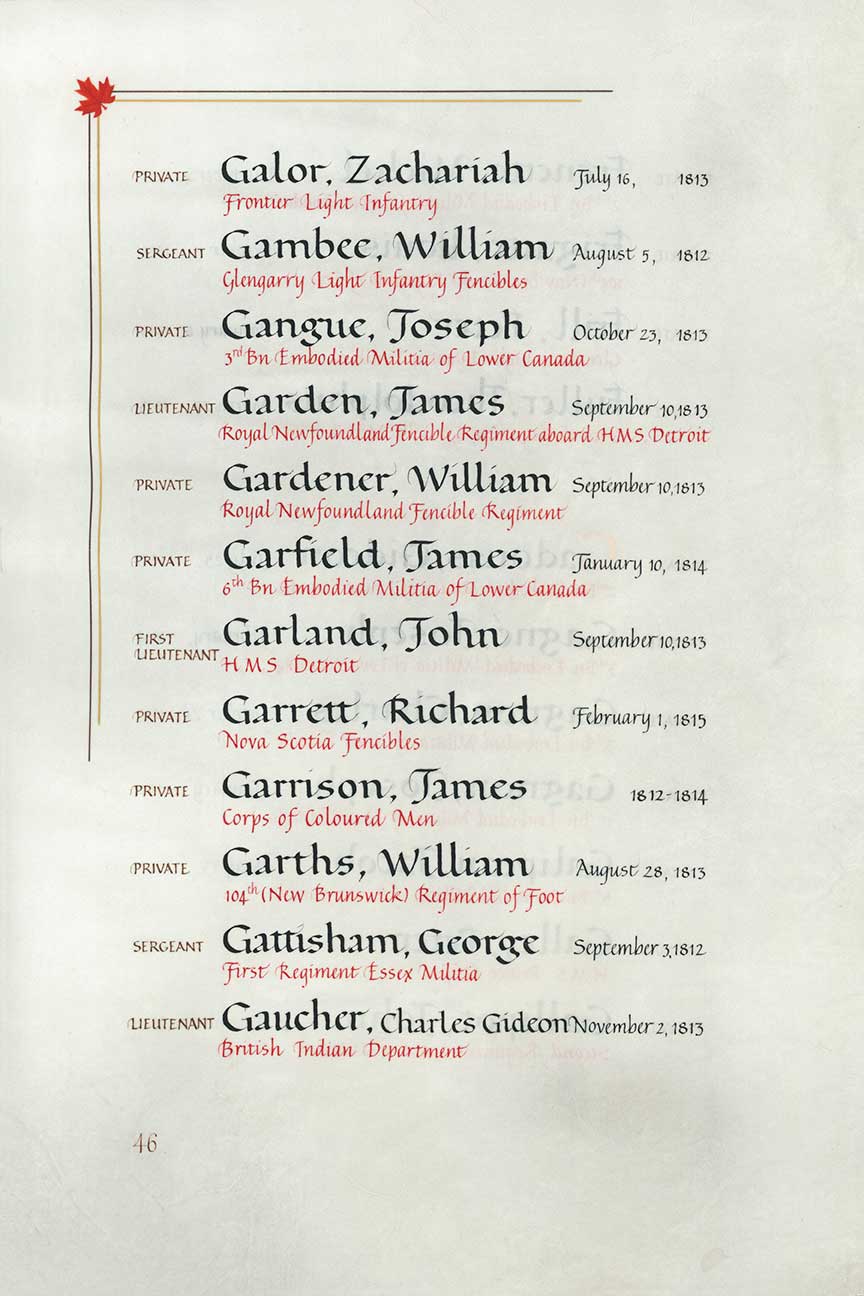 PRIVATE Galor, Zachariah July 16, 1813
Frontier Light Infantry
SERGEANT Gambee, William August 5, 1812
Glengarry Light Infantry Fencibles
PRIVATE Gangue, Joseph October 23, 1813
3rd Bn Embodied Militia of Lower Canada
LIEUTENANT Garden, James September 10, 1813
Royal Newfoundland Fencible Regiment aboard HMS Detroit
PRIVATE Gardener, William September 10, 1813
Royal Newfoundland Fencible Regiment
PRIVATE Garfield, James January 10, 1814
6th Bn Embodied Militia of Lower Canada
FIRST LIEUTENANT Garland, John September 10, 1813
HMS Detroit
PRIVATE Garrett, Richard February 1, 1815
Nova Scotia Fencibles
PRIVATE Garrison, James 1812-1814
Corps of Coloured Men
PRIVATE Garths, William August 28, 1813
104th (New Brunswick) Regiment of Foot
SERGEANT Gattisham, George September 3, 1812
First Regiment Essex Militia
LIEUTENANT Gaucher, Charles Gideon November 2, 1813
British Indian Department
46